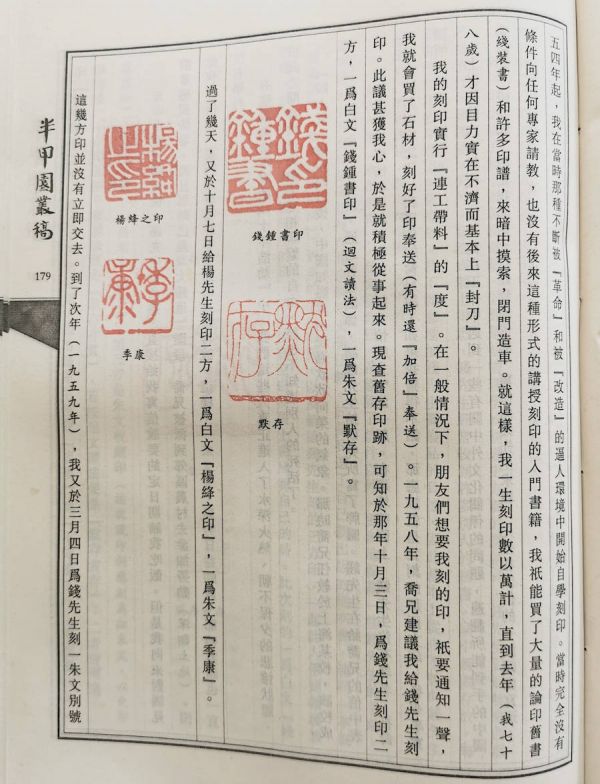 五四年起，我在當時那種不斷被『革命』和被『改造』的逼人環境中開始自學刻印。當時完全沒有
條件向任何專家請教，也沒有後來這種形式的講授刻印的入門書籍，我祇能買了大量的論印舊書
（綫裝書）和許多印譜，來暗中摸索，閉門造車。就這樣，我一生刻印數以萬計，直到去年（我七十
八歲）才因目力實在不濟而基本上『封刀』。
我的刻印實行『連工帶料』的『度』。在一般情況下，朋友們想要我刻的印，祇要通知一聲，
我就會買了石材，刻好了印奉送（有時還『加倍』奉送）。一九五八年，喬兄建議我給錢先生刻
印。此議甚獲我心，於是就積極從事起來。現查舊存印跡，可知於那年十月三日，爲錢先生刻印二
方，一爲白文『錢鍾書印』（迴文讀法），一爲朱文『默存』。
錢鍾書印
默存
過了幾天，又於十月七日給楊先生刻印二方，一爲白文『楊絳之印』，一爲朱文『季康』。
楊絳之印
季康
這幾方印並沒有立即交去。到了次年（一九五九年），我又於三月四日爲錢先生刻一朱文別號
半甲園叢稿
179